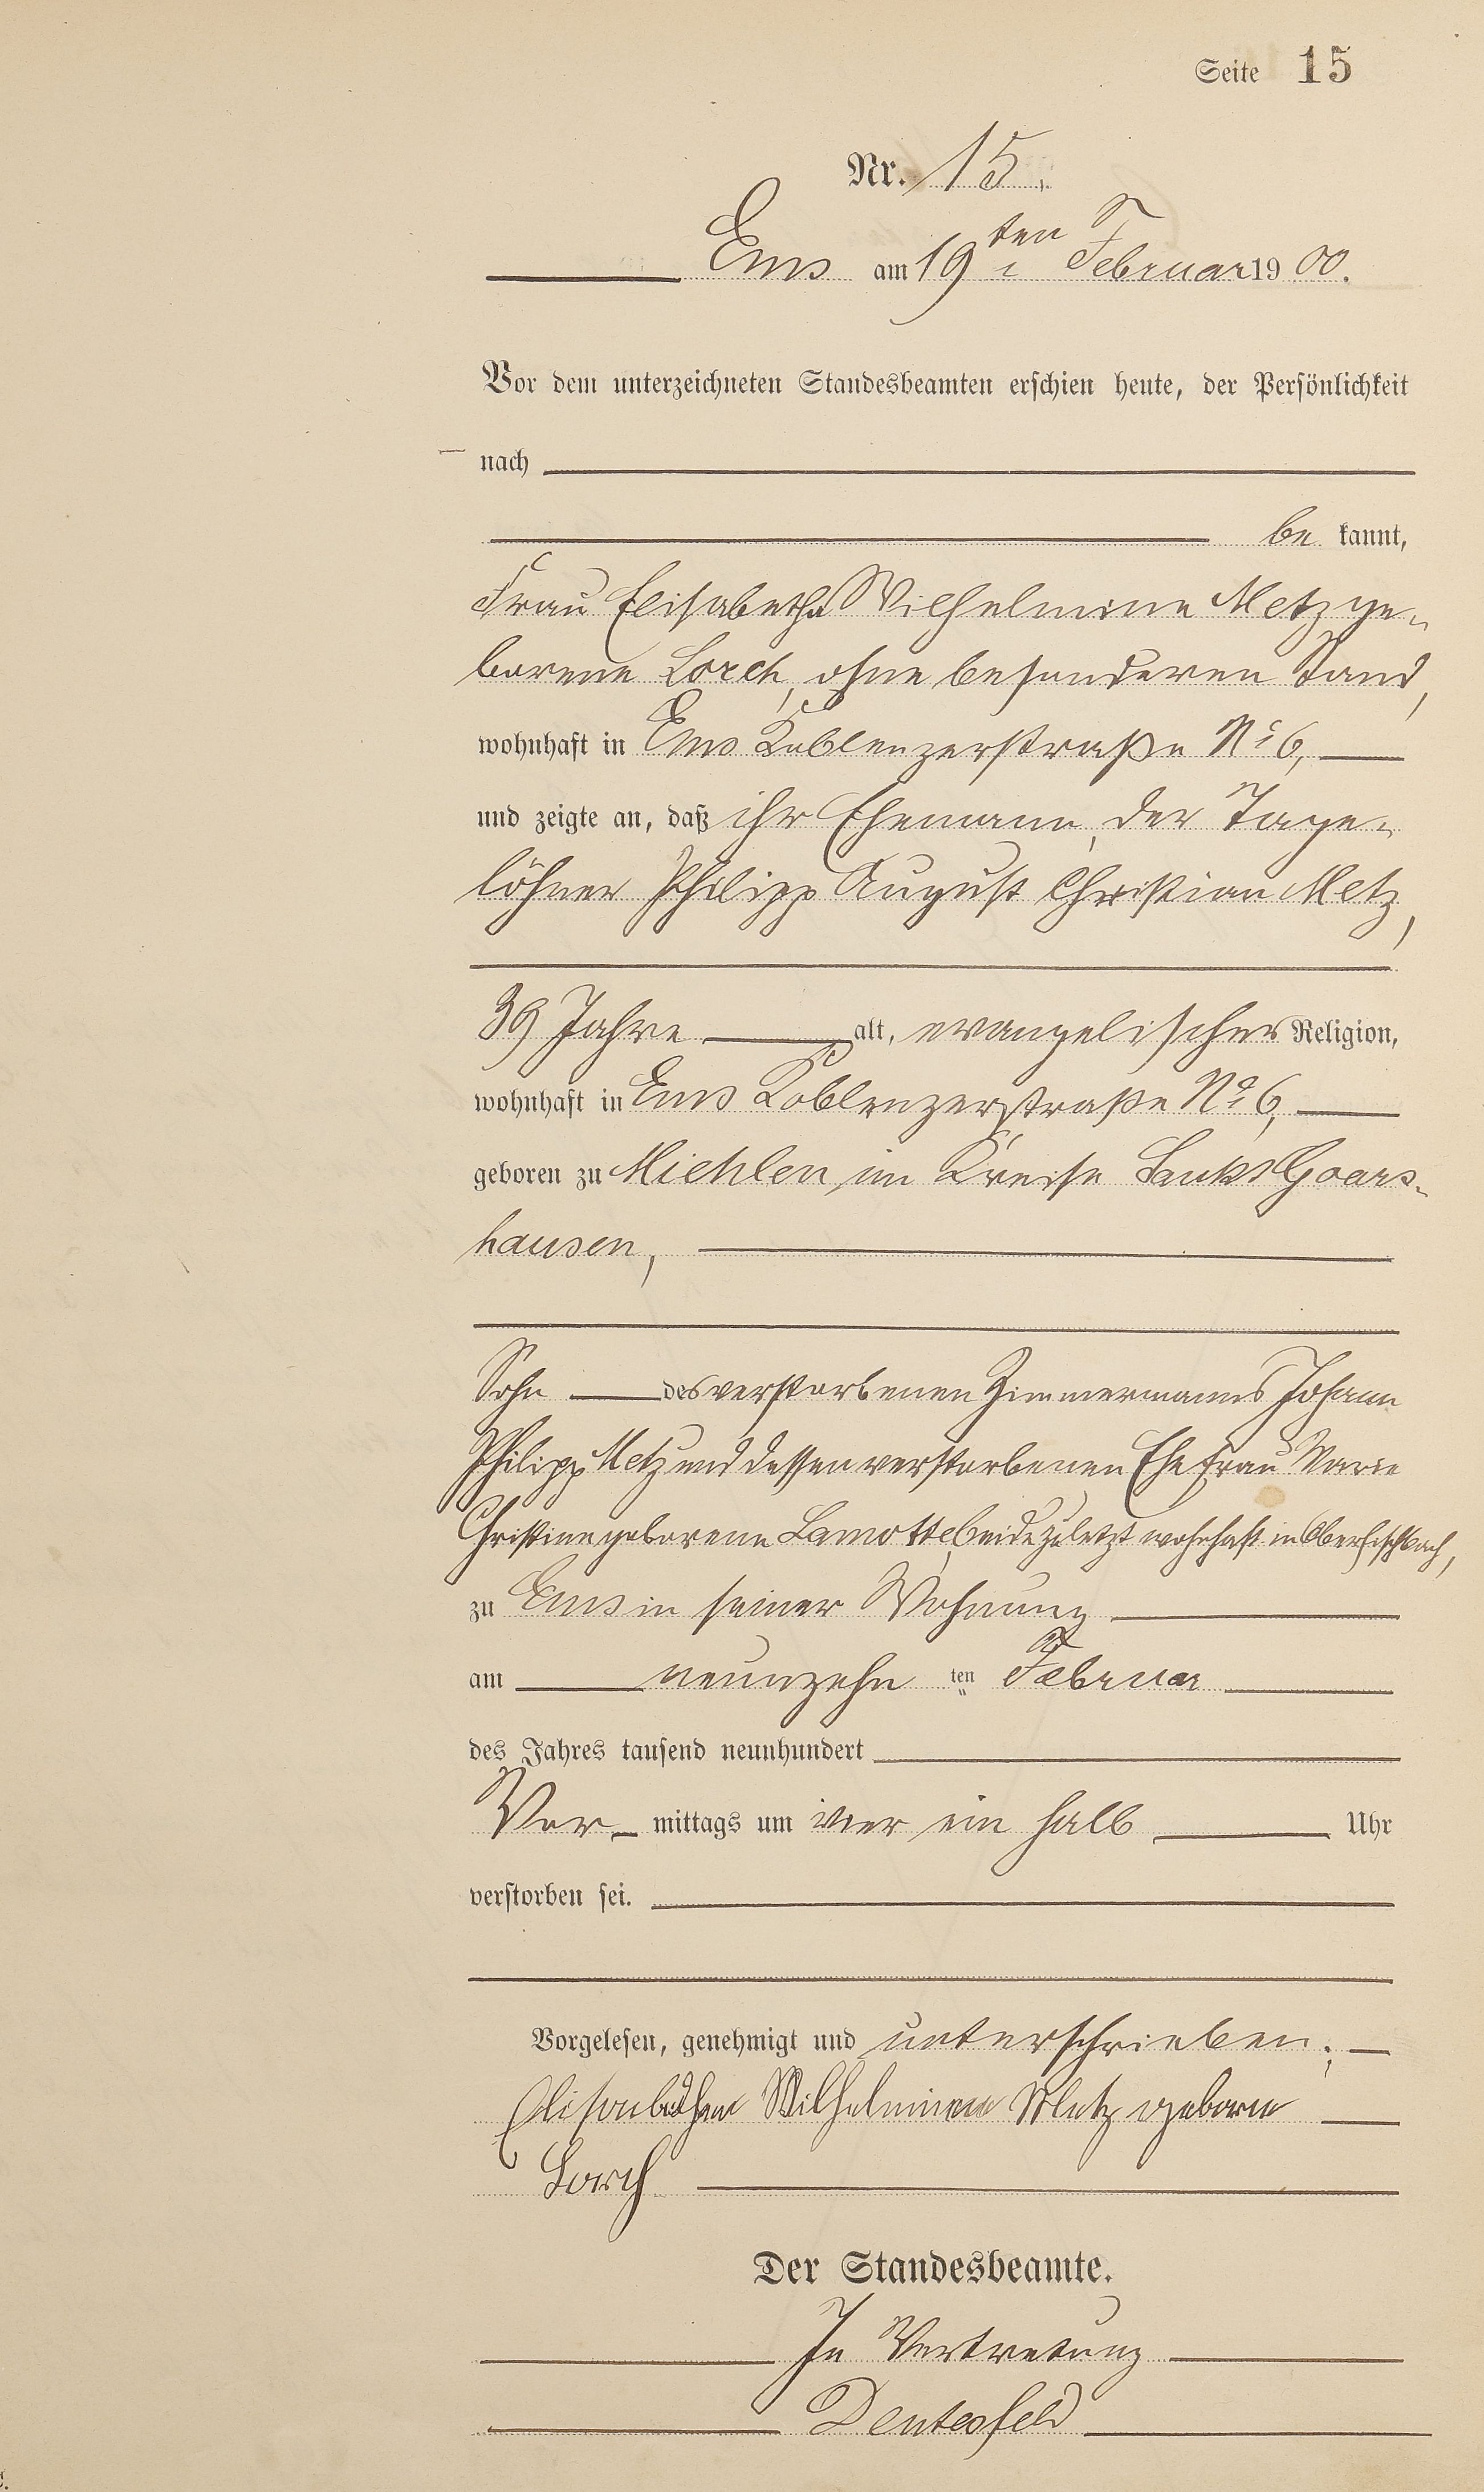 Seite 15
Nr. 15.
Ems am 19ten Februar 1900.
Vor dem unterzeichneten Standesbeamten erschien heute, der Persönlichkeit
nach
be kannt,
Frau Elisabetha Wilhelmine Metz ge-
borene Lorch, ohne besonderen Stand,
wohnhaft in Ems Koblenzerstraße No 6,
und zeigte an, daß ihr Ehemann, der Tage-
löhner Philipp August Christian Metz,
39 Jahre alt, evangelischer Religion,
wohnhaft in Ems Koblenzerstraße No 6,
geboren zu Miehlen im Kreise Sankt Goars-
hausen,
Sohn des verstorbenen Zimmermanns Johann
Philipp Metz und dessen verstorbenen Ehefrau Marie
Christine geborene Lamotte, beide zuletzt wohnhaft in Oberfischbach,
zu Ems in seiner Wohnung
am neunzehn ten Februar
des Jahres tausend neunhundert
Vor- mittags um vier ein halb Uhr
verstorben sei.
Vorgelesen, genehmigt und unterschrieben.
Wilhelmine Metz geborne
Lorch
Der Standesbeamte.
In Vertretung